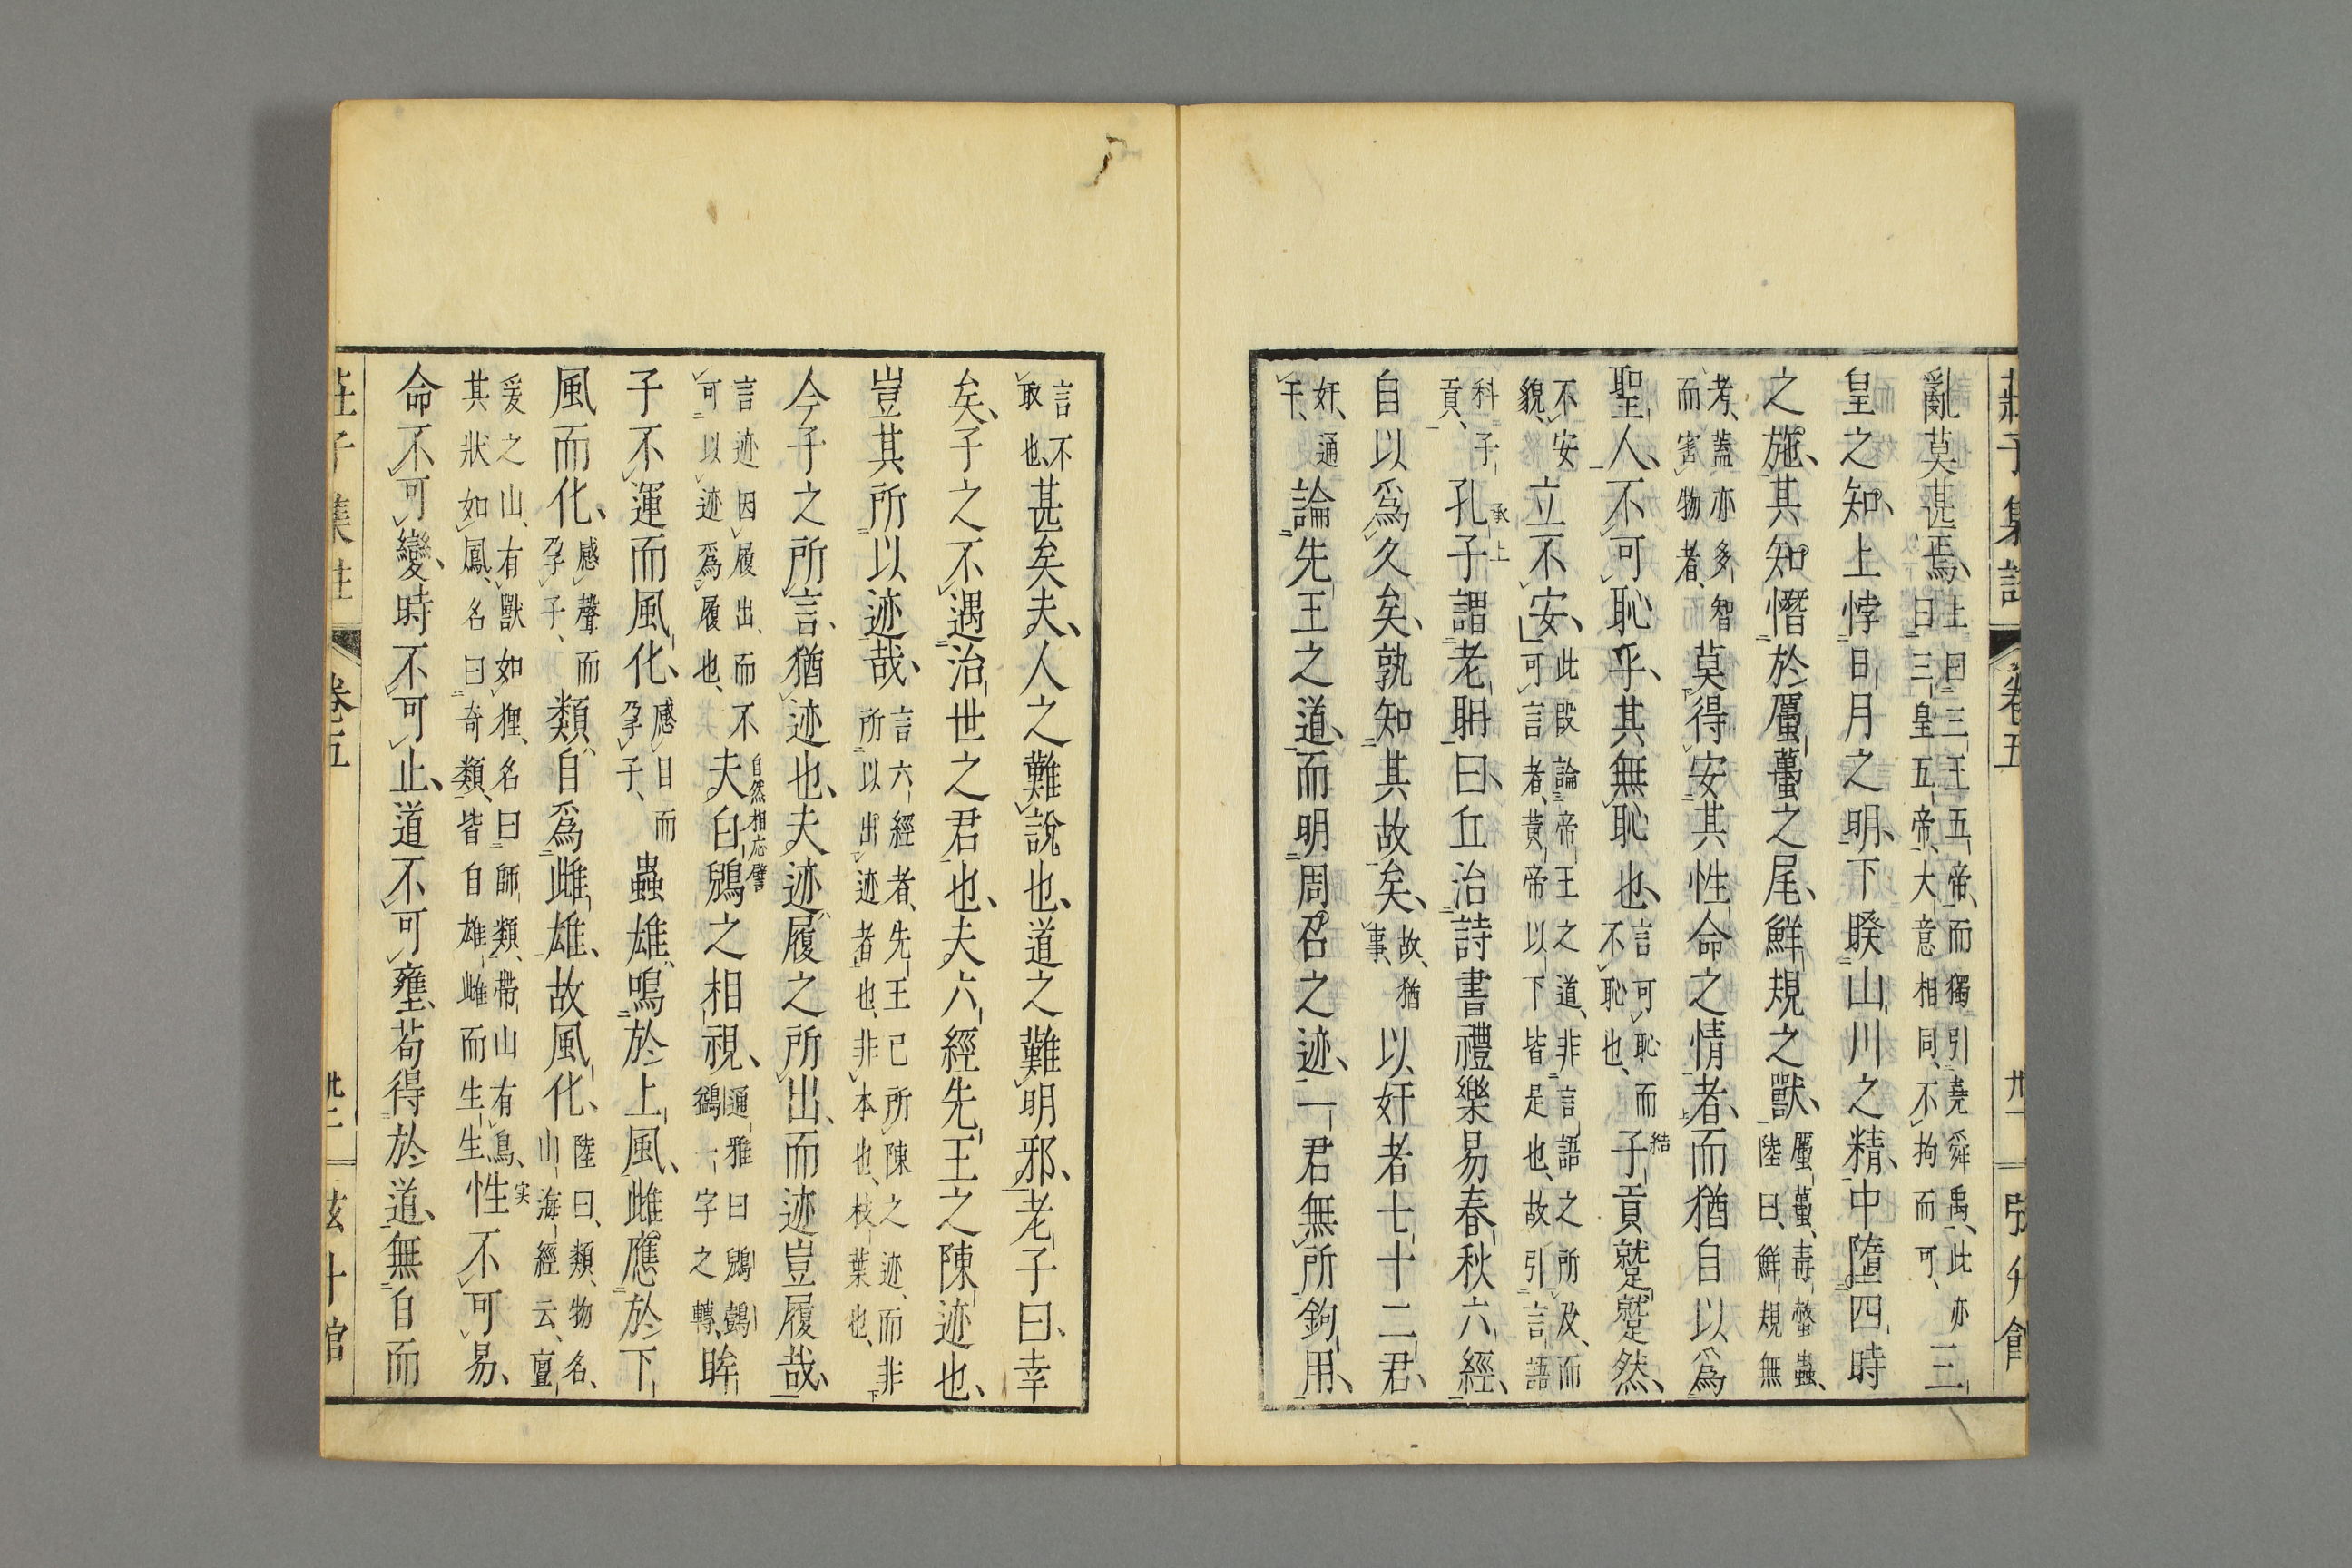 莊子集註 卷五 卅一 弢升館
亂莫甚焉、上曰三王五帝、而獨引堯舜禹、此亦曰三皇五帝、大意相同、不拘而可、三
皇之知、上悖日月之明、下睽山川之精、中墮四時
之施、其知憯於厲蠆之尾、鮮規之獸、厲蠆、毒螫蟲、陸曰、鮮規無
考、蓋亦多智而害物者、莫得安其性命之情者、而猶自以爲
聖人、不可恥乎、其無恥也、言可恥而不恥也、結子貢蹵蹵然、
不安貌、立不安、此段論帝王之道、非言語之所及、而可言者、黃帝以下皆是也、故引言語
科子貢、承上孔子謂老聃曰、丘治詩書禮樂易春秋六經、
自以爲久矣、孰知其故矣、故、猶事、以奸者七十二君、
奸、通干、論先王之道、而明周召之迹、一君無所鉤用、
言不取也、甚矣夫、人之難說也、道之難明邪、老子曰、幸
矣、子之不遇治世之君也、夫六經先王之陳迹也、
豈其所以迹哉、言六經者、先王已所陳之迹、而非所以出迹者也、非本也、枝葉也、
今子之所言、猶迹也、夫迹履之所出、而迹豈履哉、
言迹因履出、而不可以迹爲履也、自然相忘譬夫白鶂之相視、通雅曰鶂鷁鷁一字之轉、眸
子不運而風化、感目而孕子、蟲雄鳴於上風、雌應於下
風而化、感聲而孕子、類自爲雌雄、故風化、陸曰、類、物名、山海經云、亶
爰之山、有獸如狸、名曰師類、帶山有鳥、其狀如鳳、名曰奇類、皆自雄雌而生生、实性不可易、
命不可變、時不可止、道不可壅、苟得於道、無自而
莊子集註 卷五 卅一 弢升館